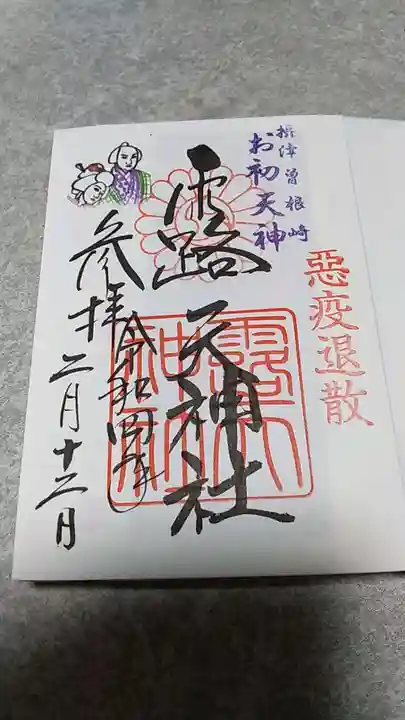 惡疫退散
摂津曽根崎
お初天神
露天神社
参拝
令和四年
二月十二日